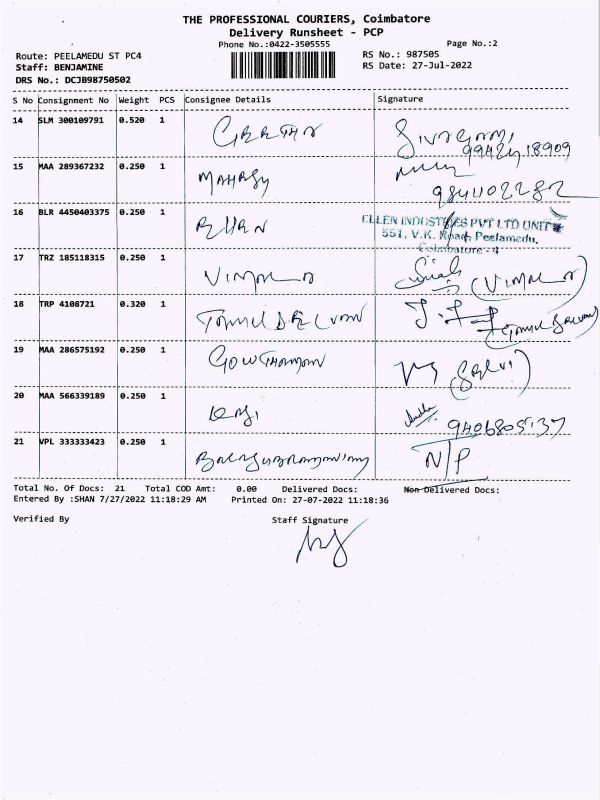 THE PROFESSIONAL COURIERS, Coimbatore
Delivery Runsheet - PCP
Phone No.:0422-3505555
Page No.:2
Route: PEELAMEDU ST PC4
RS No.: 987505
Staff: BENJAMINE
RS Date: 27-Jul-2022
DRS No.: DCJB98750502
S No Consignment No Weight PCS Consignee Details Signature
14 SLM 300109791 0.520 1 GEETHA
15 MAA 289367232 0.250 1
16 BLR 4450403375 0.250 1
ELLEN INDUSTRIES PVT LTD UNIT
551, V.K. Road, Peelamedu,
Coimbatore - 4
17 TRZ 185118315 0.250 1 VIMALA (VIMALA)
18 TRP 4108721 0.320 1 TAMIL SELVAN (TAMIL SELVAN)
19 MAA 286575192 0.250 1 GOWTHAMAN (SELVI)
20 MAA 566339189 0.250 1 9406805137
21 VPL 333333423 0.250 1 N/P
Total No. Of Docs: 21 Total COD Amt: 0.00 Delivered Docs: Non Delivered Docs:
Entered By :SHAN 7/27/2022 11:18:29 AM Printed On: 27-07-2022 11:18:36
Verified By Staff Signature